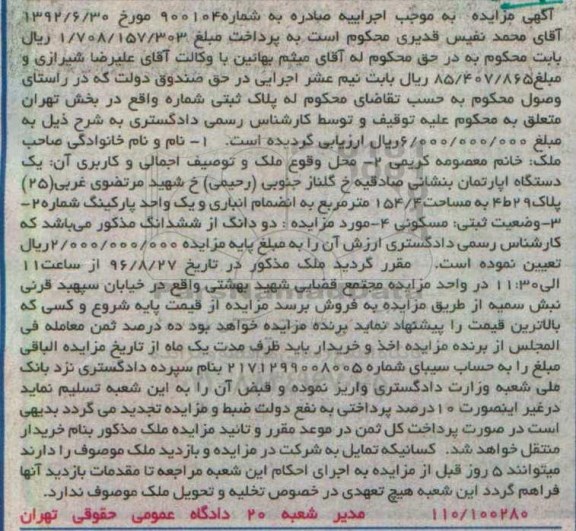 آگهی مزایده به موجب اجراییه صادره به شماره۹۰۰۱۰۴ مورخ ۱۳۹۲/۶/۳۰
آقای محمد نفیس قدیری محکوم است به پرداخت مبلغ ۱/۷۰۸/۱۵۷/۳۰۳ ریال
بابت محکوم به در حق محکوم له آقای میثم بهائین با وکالت آقای علیرضا شیرازی و
مبلغ۸۵/۴۰۷/۸۶۵ ریال بابت نیم عشر اجرایی در حق صندوق دولت که در راستای
وصول محکوم به حسب تقاضای محکوم له پلاک ثبتی شماره واقع در بخش تهران
متعلق به محکوم علیه توقیف و توسط کارشناس رسمی دادگستری به شرح ذیل به
مبلغ ۶/۰۰۰/۰۰۰/۰۰۰ریال ارزیابی گردیده است. ۱- نام و نام خانوادگی صاحب
ملک: خانم معصومه کریمی ۲- محل وقوع ملک و توصیف اجمالی و کاربری آن: یک
دستگاه اپارتمان بنشانی صادقیه خ گلناز جنوبی (رحیمی) خ شهید مرتضوی غربی(۲۵)
پلاک۲۹ط۴ به مساحت۱۵۴/۴ مترمربع به انضمام انباری و یک واحد پارکینگ شماره۲-
۳-وضعیت ثبتی: مسکونی ۴-مورد مزایده : دو دانگ از ششدانگ مذکور می‌باشد که
کارشناس رسمی دادگستری ارزش آن را به مبلغ پایه مزایده ۲/۰۰۰/۰۰۰/۰۰۰ریال
تعیین نموده است. مقرر گردید ملک مذکور در تاریخ ۹۶/۸/۲۷ از ساعت۱۱
الی۱۱:۳۰ در واحد مزایده مجتمع قضایی شهید بهشتی واقع در خیابان سپهبد قرنی
نبش سمیه از طریق مزایده به فروش برسد مزایده از قیمت پایه شروع و کسی که
بالاترین قیمت را پیشنهاد نماید برنده مزایده خواهد بود ده درصد ثمن معامله فی
المجلس از برنده مزایده اخذ و خریدار باید ظرف مدت یک ماه از تاریخ مزایده الباقی
مبلغ را به حساب سیبای شماره ۲۱۷۱۲۹۹۰۰۸۰۰۵ بنام سپرده دادگستری نزد بانک
ملی شعبه وزارت دادگستری واریز نموده و قبض آن را به این شعبه تسلیم نماید
درغیر اینصورت ۱۰درصد پرداختی به نفع دولت ضبط و مزایده تجدید می گردد بدیهی
است در صورت پرداخت کل ثمن در موعد مقرر و تائید مزایده ملک مذکور بنام خریدار
منتقل خواهد شد. کسانیکه تمایل به شرکت در مزایده و بازدید ملک موصوف را دارند
میتوانند ۵ روز قبل از مزایده به اجرای احکام این شعبه مراجعه تا مقدمات بازدید آنها
فراهم گردد این شعبه هیچ تعهدی در خصوص تخلیه و تحویل ملک موصوف ندارد.
۱۱۰/۱۰۰۲۸۰ مدیر شعبه ۲۰ دادگاه عمومی حقوقی تهران